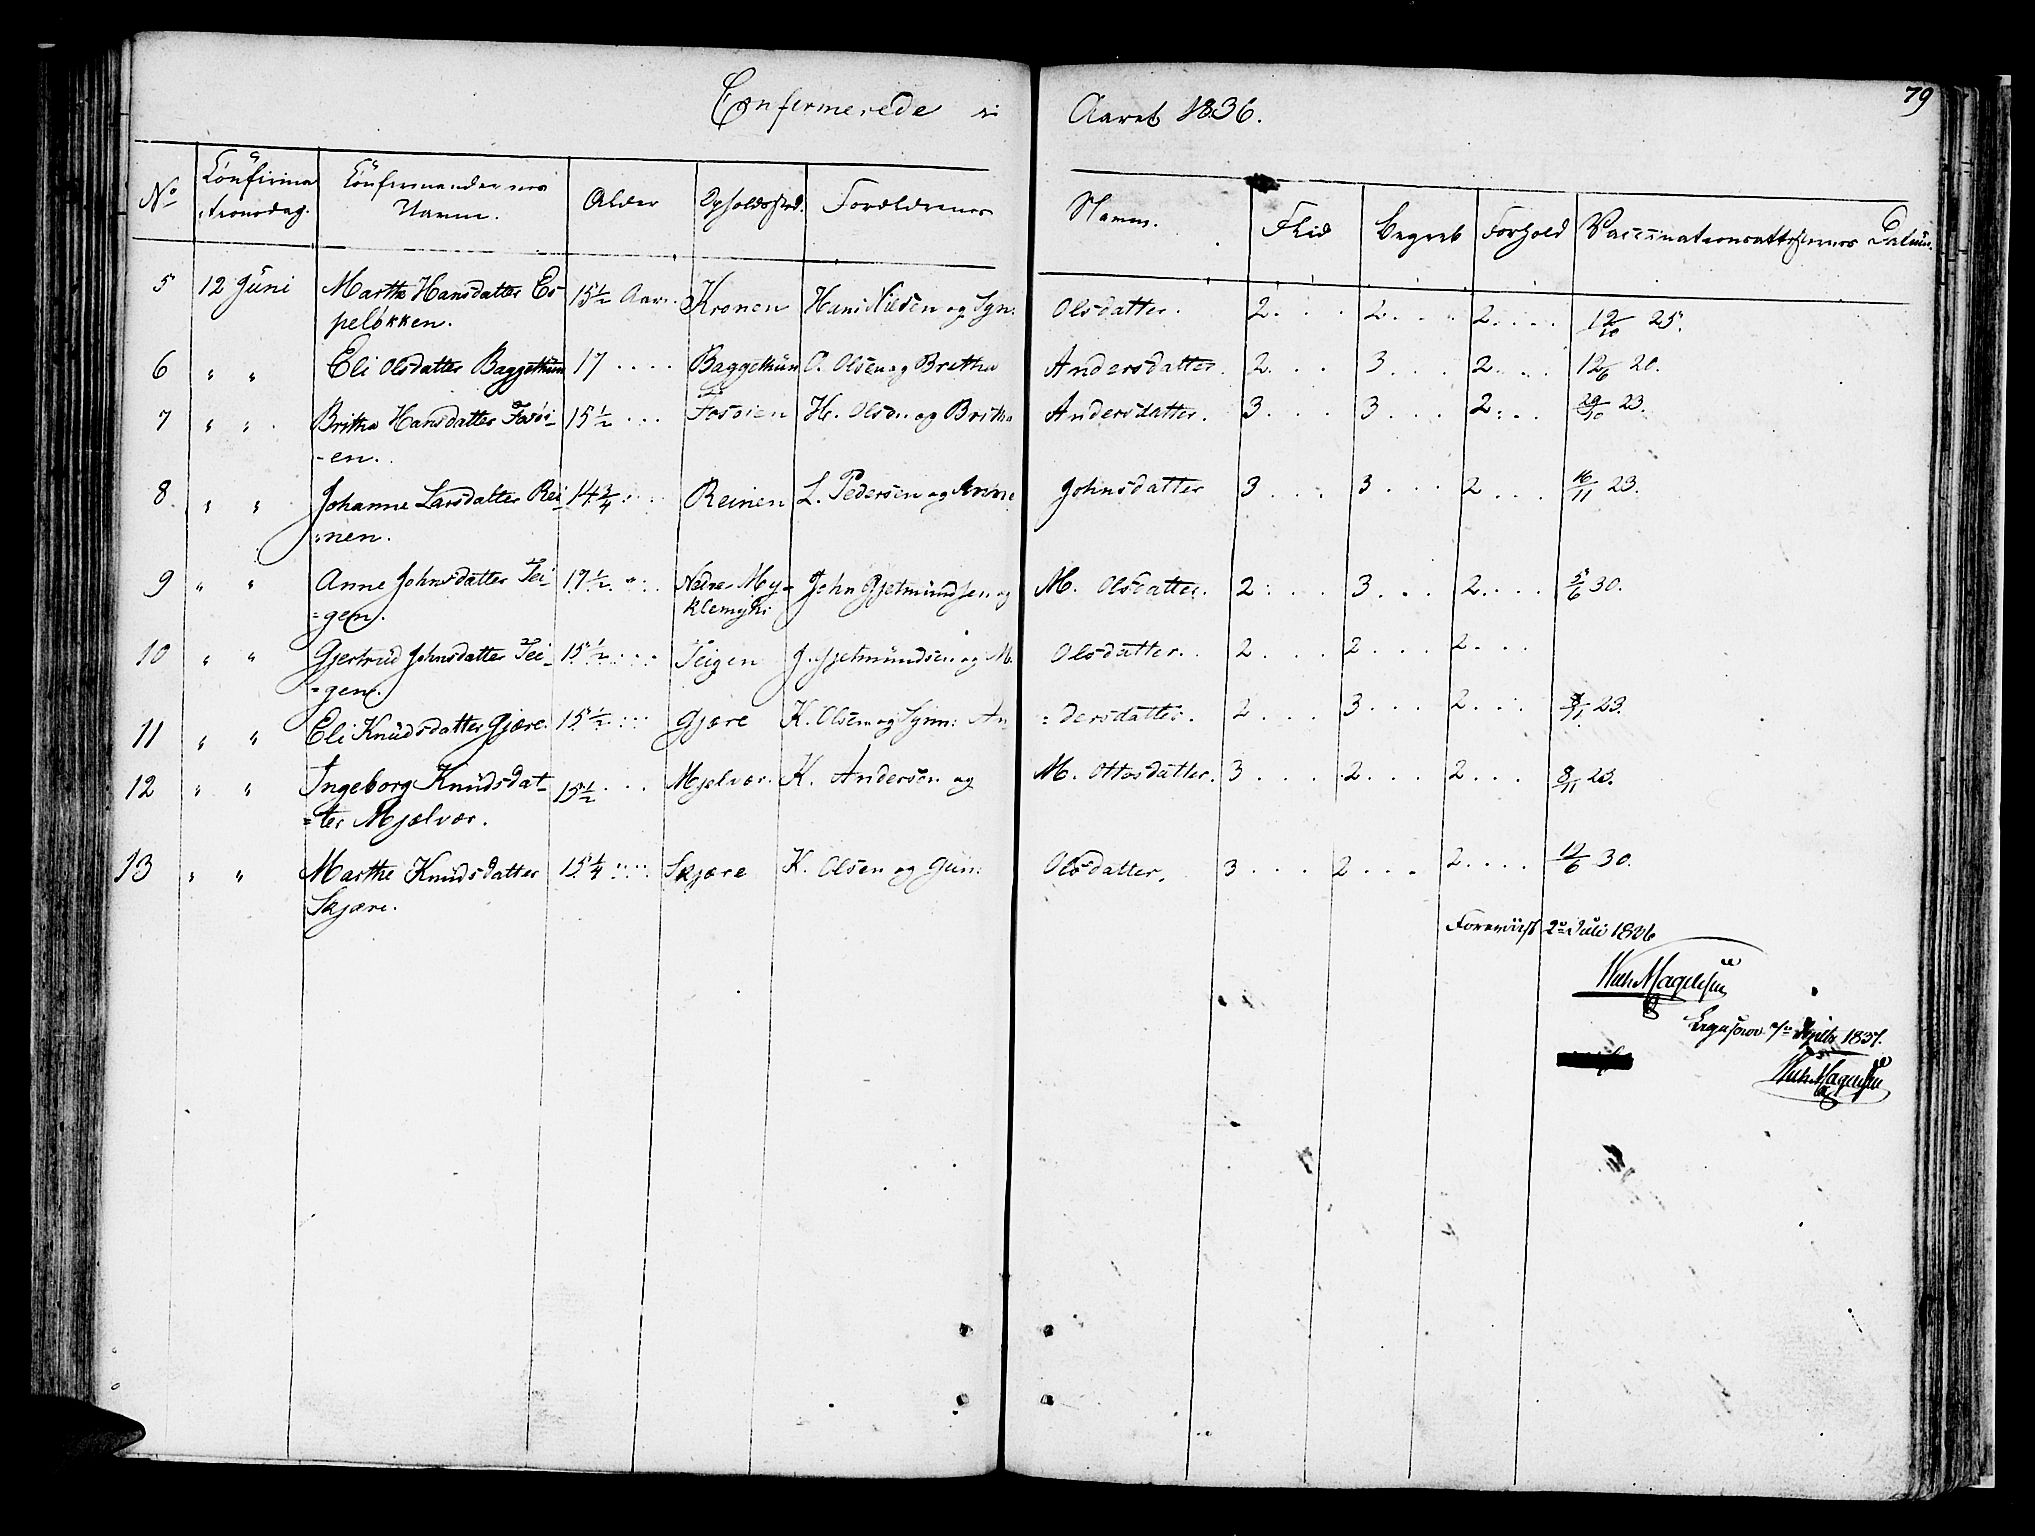 79
Confirmerede i Aaret 1836.
No Confirma- tionsdag. Confirmandernes Navne. Alder Opholdssted. Forældrenes Navne. Flid Begreb Forhold Vaccinationsattesternes Datum.
5 12 Juni Marthe Hansdatter Es- 15½ Aar. Kronen Hans Nilsen og Syn: Olsdatter. 2. . . 2. . . 2. . . . 12/10 25.
peløkken.
6 " " Eli Olsdatter Baggethun 17 . . . . Baggethun O. Olsen og Britha Andersdatter. 2. . . 3. . . 2. . . 12/6 20.
7 " " Britha Hansdatter Fosøi- 15½ . . . Fosøien H. Olsen og Britha Andersdatter. 3. . . 3. . . 2. . . 29/10 23.
-en.
8. " " Johanne Larsdatter Rei- 14¾ . . . Reinen L. Pedersen og Anne Johnsdatter 3. . . 3. . . 2. . . 16/11 23.
nen.
9 " " Anne Johnsdatter Tei- 17½ . . Nedre My- John Gjetmundsen og M. Olsdatter. 2. . . 3. . . 2. . . . 5/6 30.
=gen. klemyhr
10 " " Gjertrud Johnsdatter Tei- 15½ . . . Teigen J. Gjetmundsen og M. Olsdatter. 2. . . 2. . . 2. . .
=gen.
11 " " Eli Knudsdatter Gjære. 15½ . . . Gjære K. Olsen og Synn: An= dersdatter. 2. . . 3. . . 2. . . 8/11 23.
12 " " Ingeborg Knudsdat- 15½ . . . Mjelvær. K. Andersen og M. Ottosdatter. 3. . . 2. . . 2. . . 8/11 23.
=ter Mjælvær.
13 " " Marthe Knudsdatter 15¼ . . . Skjære K. Olsen og Gun: Olsdatter. 3. . . 2. . . 2. . . . 12/6 30.
Skjære.
Foreviist 2n Juli 1836
Wilh. Magelssen
1837.
Wilh. Magelssen